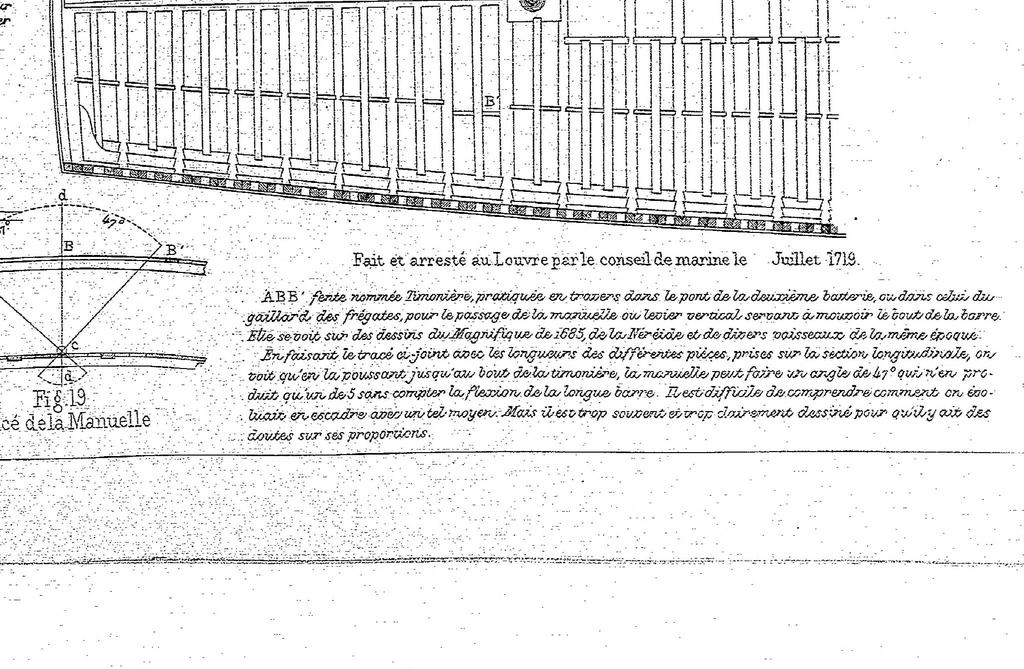 er
B
d
47°
B
B'
c
d
Fig. 19
cé de la Manuelle
Fait et arresté au Louvre par le conseil de marine le Juillet 1719.
ABB' fente nommée Timonière, pratiquée en travers dans le pont de la deuxième batterie, ou dans celui du
gaillard des frégates, pour le passage de la manuelle ou levier vertical servant à mouvoir le bout de la barre.
Elle se voit sur des dessins du Magnifique de 1685, de la Néréide et de divers vaisseaux de la même époque.
En faisant le tracé ci-joint avec les longueurs des différentes pièces, prises sur la section longitudinale, on
voit qu'en la poussant jusqu'au bout de la timonière, la manuelle peut faire un angle de 47° qui n'en pro-
duit qu'un de 5 sans compter la flexion de la longue barre. Il est difficile de comprendre comment on évo-
luait en escadre avec un tel moyen. Mais il est trop souvent et trop clairement dessiné pour qu'il y ait des
doutes sur ses proportions.